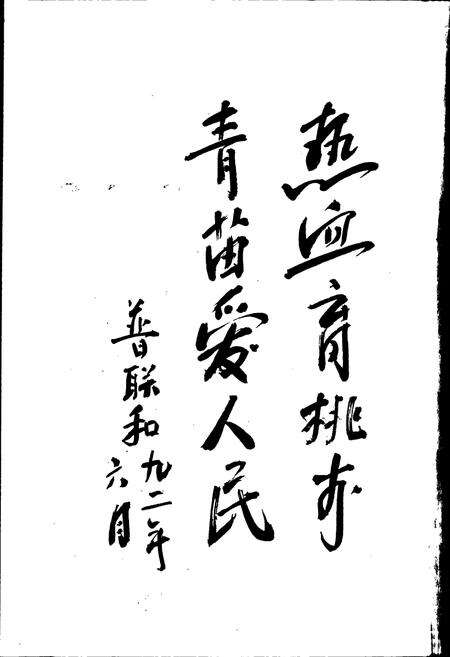 热血育桃李
青苗爱人民
普联和九二年
六月